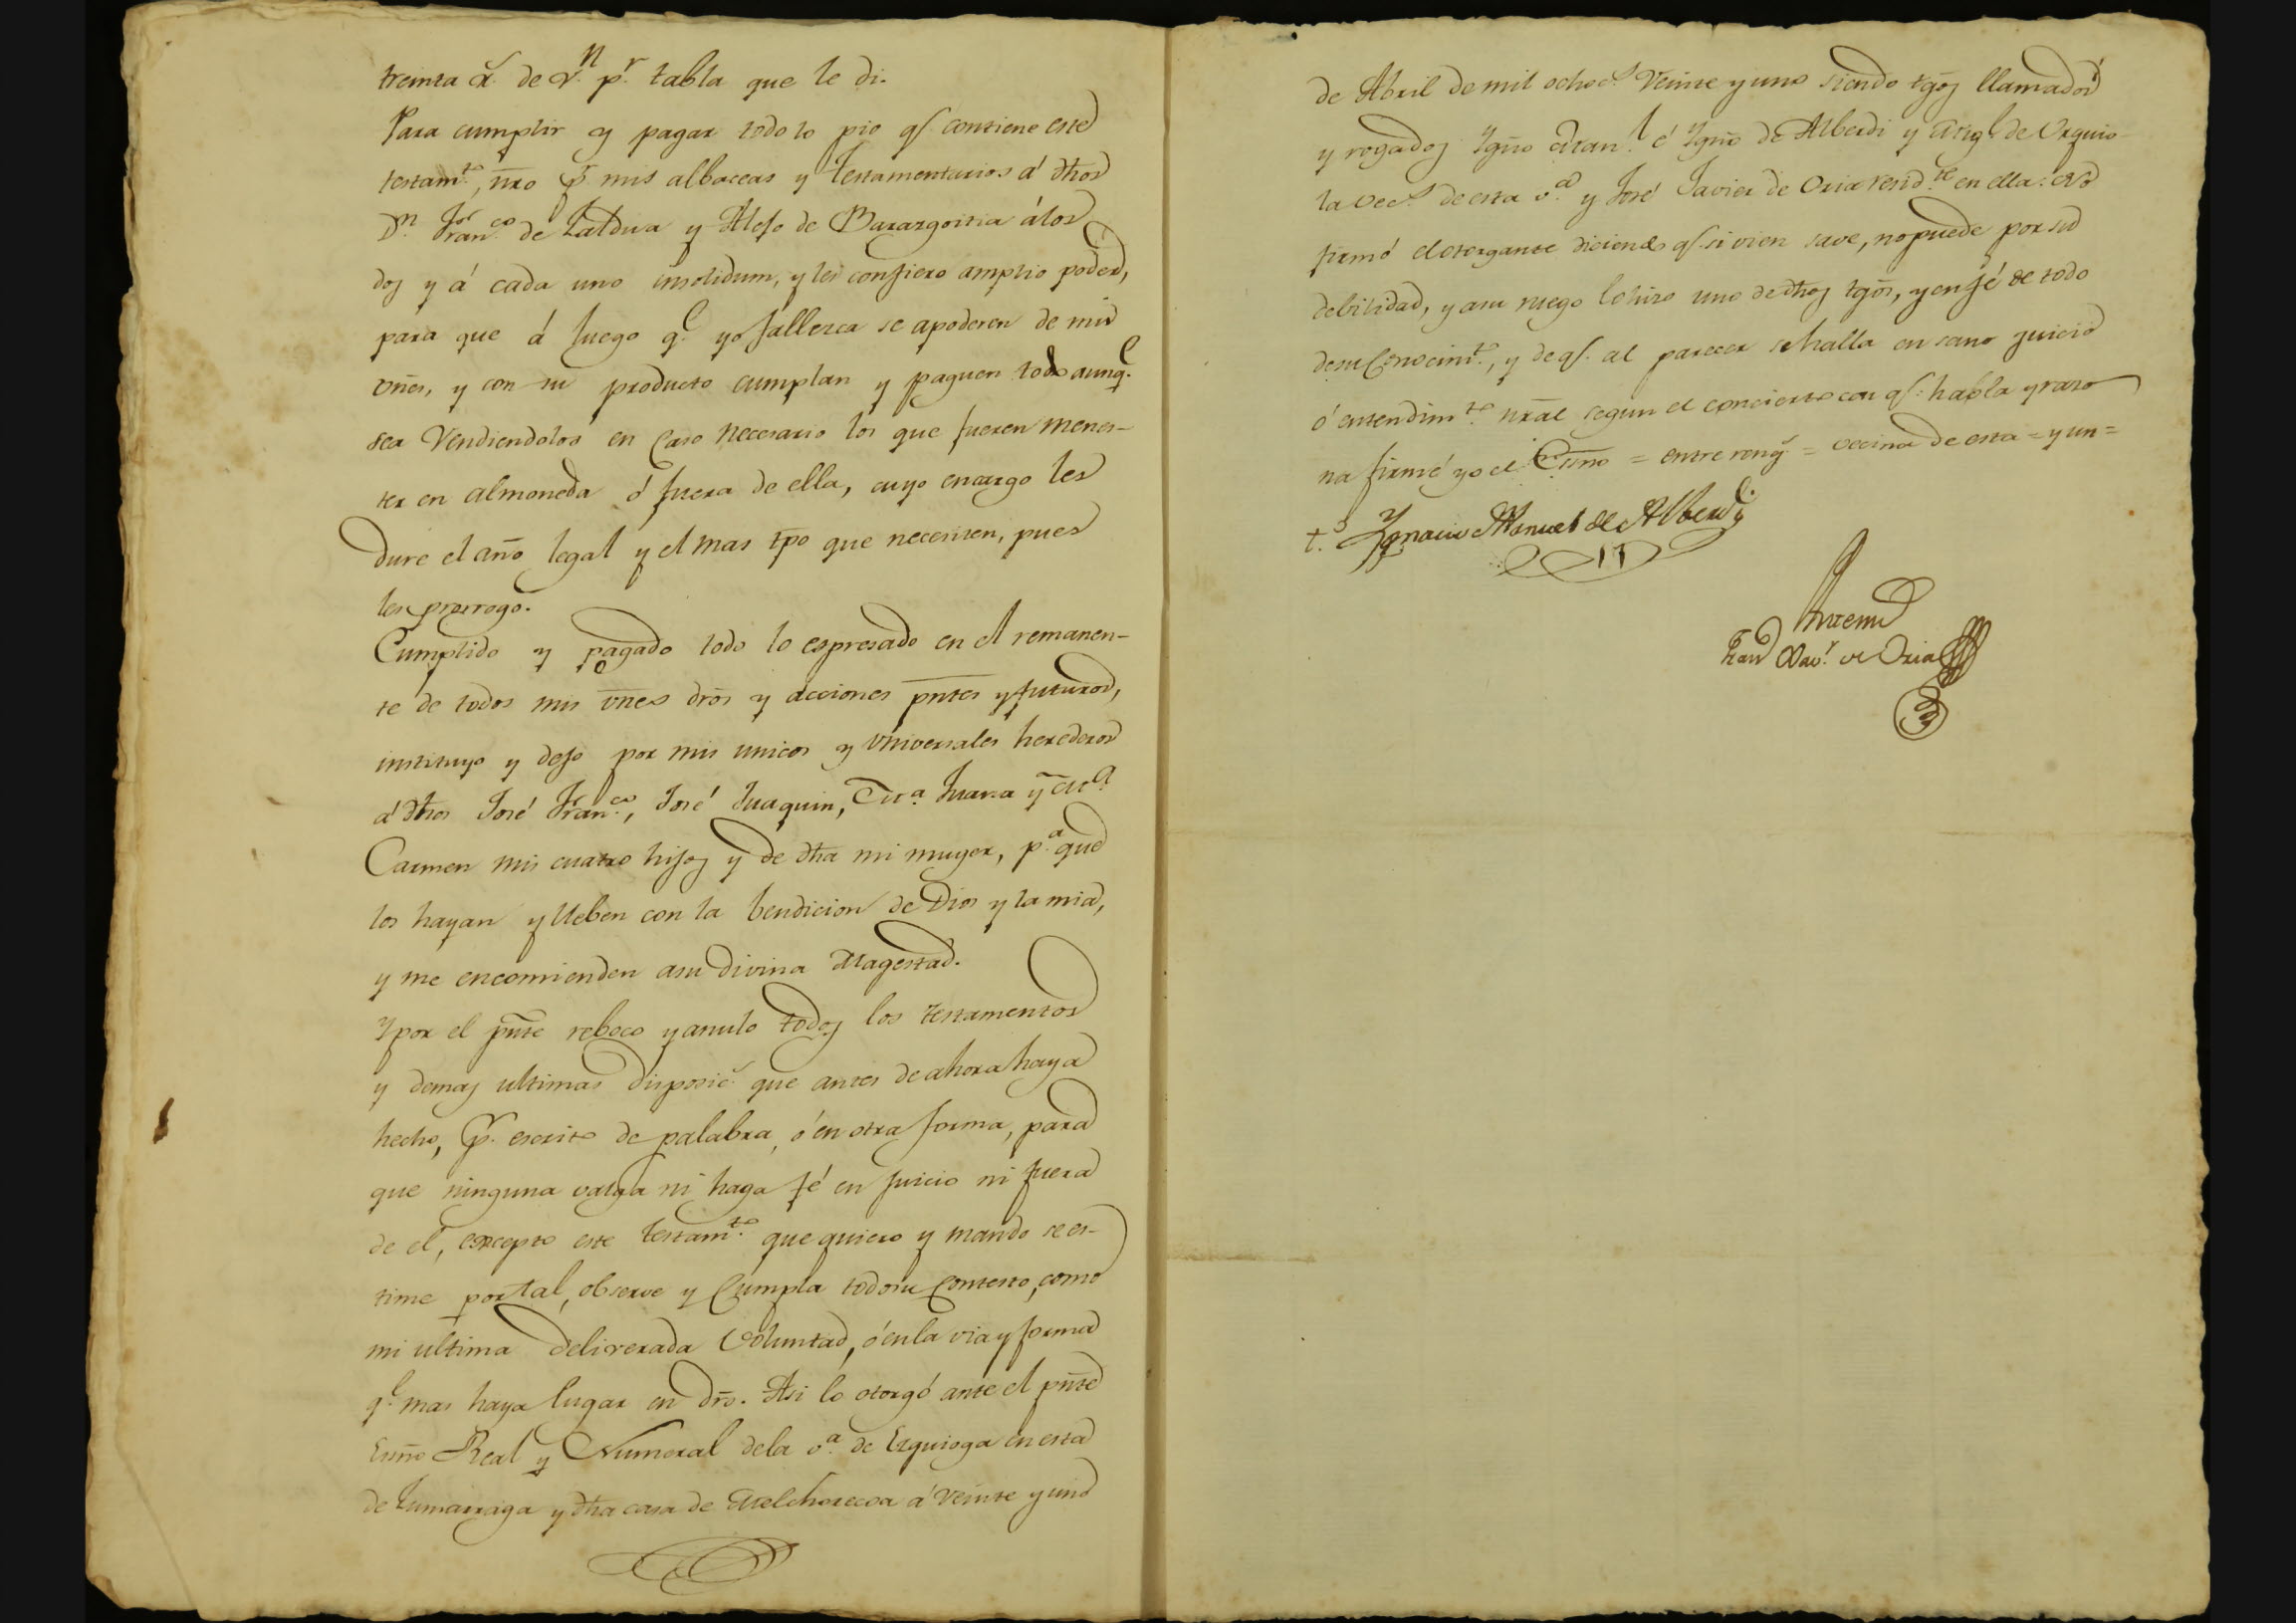 treinta r.ˢ de v.ⁿ p.ʳ tabla que le di.
Para cumplir y pagar todo lo pio q.ᵉ contiene este
testam.ᵗᵒ, nro p.ʳ mis albaceas y testamentarios á dhos
D.ⁿ Fran.ᶜᵒ de Zaldua y Alejo de Barazgoitia á los
dos y á cada uno insolidum, y les confiero amplio poder,
para que á luego q.ᵉ yo fallezca se apoderen de mis
vnes, y con su producto cumplan y paguen todo aunq.ᵉ
sea Vendiendolos en caso necesario los que fueren menes-
ter en almoneda ó fuera de ella, cuyo encargo les
dure el año legal y el mas tpo que necesiten, pues
les prorrogo.
Cumplido y pagado todo lo espresado en el remanen-
te de todos mis vnes dros y acciones pntes y futuros,
instituyo y dejo por mis unicos y vniversales herederos
á dhos José Fran.ᶜᵒ, José Juaquin, Juana y M.ᵃ
Carmen mis cuatro hijos y de dha mi muger, p.ᵃ que
los hayan y lleben con la bendicion de Dios y la mia,
y me encomienden asu divina Magestad.
Y por el pnte reboco y anulo todos los testamentos
y demas ultimas disposic.ˢ que antes de ahora haya
hecho, p.ʳ escrito de palabra, ó en otra forma, para
que ninguna valga ni haga fé en juicio ni fuera
de el, excepto este testam.ᵗᵒ que quiero y mando se es-
time por tal, observe y cumpla todo su contesto, como
mi ultima deliverada voluntad, ó en la via y forma
q.ᵉ mas haya lugar en dro. Asi lo otorgó ante el pnte
Esno Real y Numeral de la v.ᵃ de Ezquioga en esta
de Zumarraga y dha casa de Melchorecoa á veinte y uno
de Abril de mil ochoc.ˢ Veinte y uno siendo tgos llamados
y rogados Ygno Man.ˡ é Ygno de Alberdi y Mig.ˡ de Urquio-
la vec.ˢ de esta v.ᵃ y José Javier de Oria resid.ᵗᵉ en ella: no
firmó el otorgante diciendo q.ᵉ si vien save, no puede por su
debilidad, y asu ruego lo hizo uno de dhos tgos, y en fé de todo
de su conocim.ᵗᵒ, y de q.ᵉ al parecer se halla en sano juicio
ó entendim.ᵗᵒ nral segun el concierto con q.ᵉ habla y razo
na firmé yo el Esno = entre reng.ˢ = vecina de esta = y un =
t.º Ygnacio Manuel de Alberdi
Antemi
Xav.ʳ de Oria